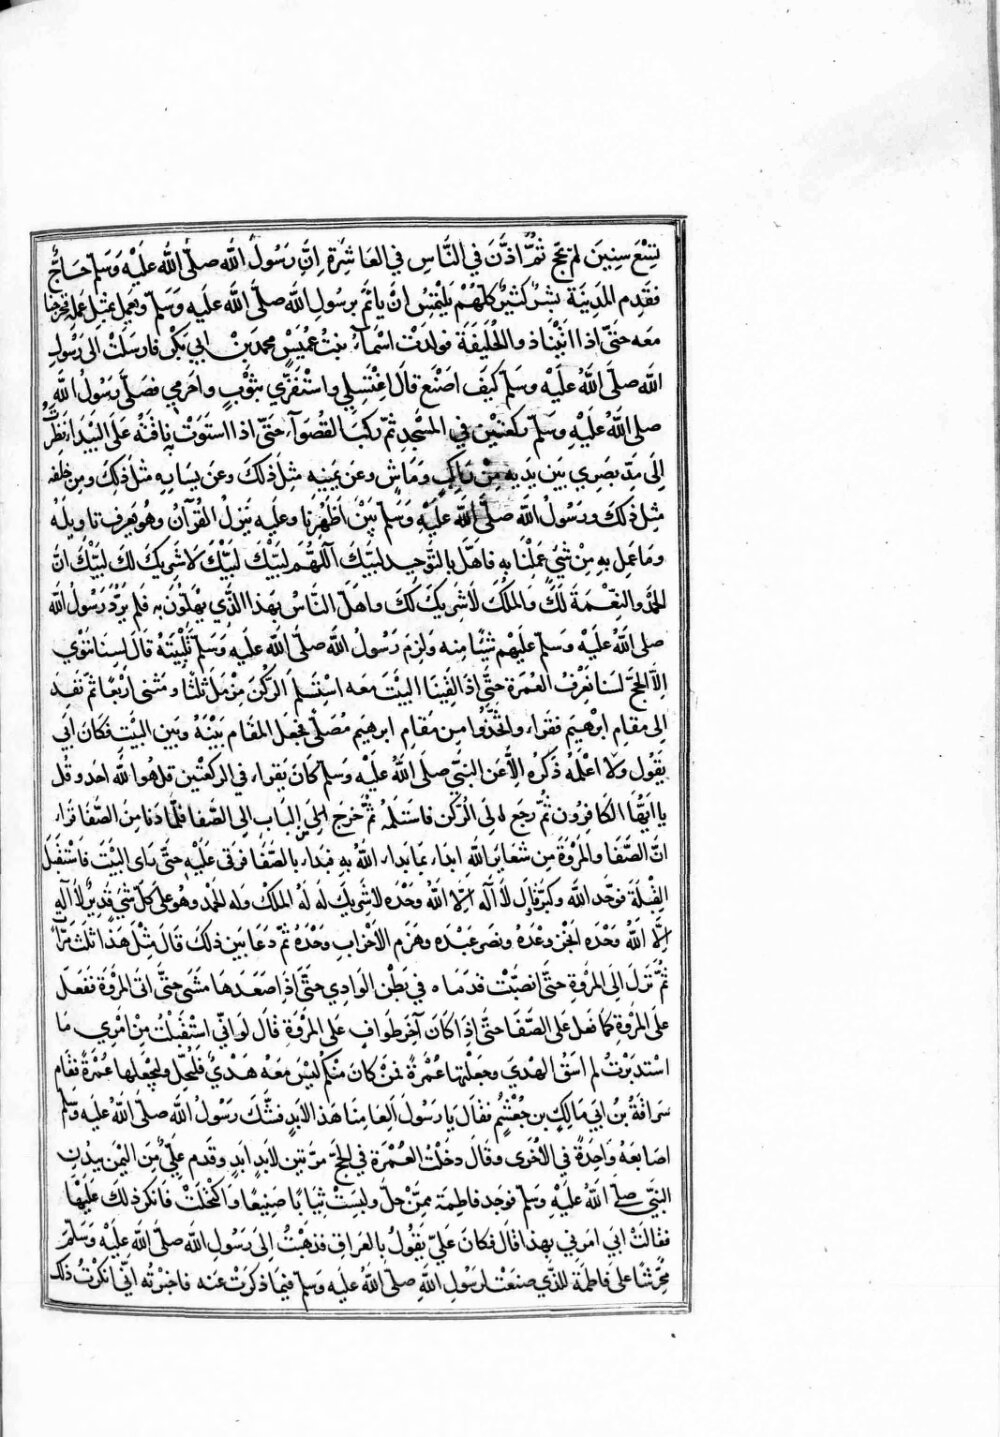 تسع سنين لم يحج ثمّ اذّن في النّاس في العاشرة انّ رسول الله صلّى الله عليه وسلم حاجّ
فقدم المدينة بشر كثير كلهم يلتمس ان ياتمّ برسول الله صلّى الله عليه وسلم ويعمل مثل عمله فخرجنا
معه حتّى اذا اتينا ذو الحليفة فولدت اسمآء بنت عميس محمد بن ابي بكر فارسلت الى رسول
الله صلى الله عليه وسلم كيف اصنع قال اغتسلي واستنفري بثوب واحرمي فصلّى رسول الله
صلى الله عليه وسلم ركعتين في المسجد ثمّ ركب القصوآء حتّى اذا استوت به ناقته على البيدا نظرتُ
الى مدّ بصري بين يديه من راكب وماش وعن يمينه مثل ذلك وعن يساره مثل ذلك ومن خلفه
مثل ذلك ورسول الله صلّى الله عليه وسلم بين اظهرنا وعليه ينزل القرآن وهو يعرف تاويله
وما عمل به من شئ عملنا به فاهلّ بالتّوحيد لبّيك اللّهُمّ لبّيك لبّيك لا شريك لك لبّيك انّ
الحمد والنّعمة لك والملك لا شريك لك واهلّ النّاس بهذا الّذي يهلّون به فلم يردّ رسول الله
صلى الله عليه وسلم عليهم شيئا منه ولزم رسول الله صلّى الله عليه وسلم تلبيته قال لسنا ننوي
الّا الحجّ لسنا نعرف العمرة حتّى اذا اتينا البيت معه استلم الرّكن فرمل ثلثا ومشى اربعا ثمّ نفد
الى مقام ابرهيم فقراء واتّخذوا من مقام ابرهيم مصلّى فجعل المقام بينه وبين البيت فكان ابي
يقول ولا اعلمه ذكره الّا عن النبيّ صلى الله عليه وسلم كان يقراء في الركعتين قل هو الله احد وقل
يا ايّها الكافرون ثمّ رجع الى الرّكن فاستلمه ثمّ خرج من الباب الى الصّفا فلمّا دنا من الصّفا قراء
انّ الصّفا والمروة من شعاير الله ابداء بما بداء الله به فبداء بالصّفا فرقى عليه حتّى راى البيت فاستقبل
القبلة فوحّد الله وكبّره وقال لا اله الا الله وحده لا شريك له له الملك وله الحمد وهو على كلّ شئ قدير لا اله
الّا الله وحده انجز وعده ونصر عبده وهزم الاحزاب وحده ثمّ دعا بين ذلك قال مثل هذا ثلث مرّات
ثمّ نزل الى المروة حتّى انصبّت قدماه في بطن الوادي حتّى اذا صعدها مشى حتّى اتى المروة ففعل
على المروة كما فعل على الصّفا حتّى اذا كان آخر طواف على المروة قال لو انّي استقبلت من امري ما
استدبرت لم اسق الهدي وجعلتها عمرة فمن كان منكم ليس معه هدي فليحلّ وليجعلها عمرة فقام
سراقة بن ابي مالك بن جعشم فقال يا رسول العامنا هذا الابد فشبّك رسول الله صلّى الله عليه وسلّم
اصابعه واحدة في الاخرى وقال دخلت العمرة في الحجّ مرّتين لابد ابد وقدم عليّ من اليمن ببدن
النّبيّ صلى الله عليه وسلم فوجد فاطمة ممّن حلّ ولبست ثيابا صبيغا واكتحلت فانكر ذلك عليها
فقالت ابي امرني بهذا قال فكان عليّ يقول بالعراق فذهبت الى رسول الله صلّى الله عليه وسلّم
محرّشا على فاطمة للذّي صنعت لرسول الله صلّى الله عليه وسلم فيما ذكرت عنه فاخبرته انّي انكرت ذلك